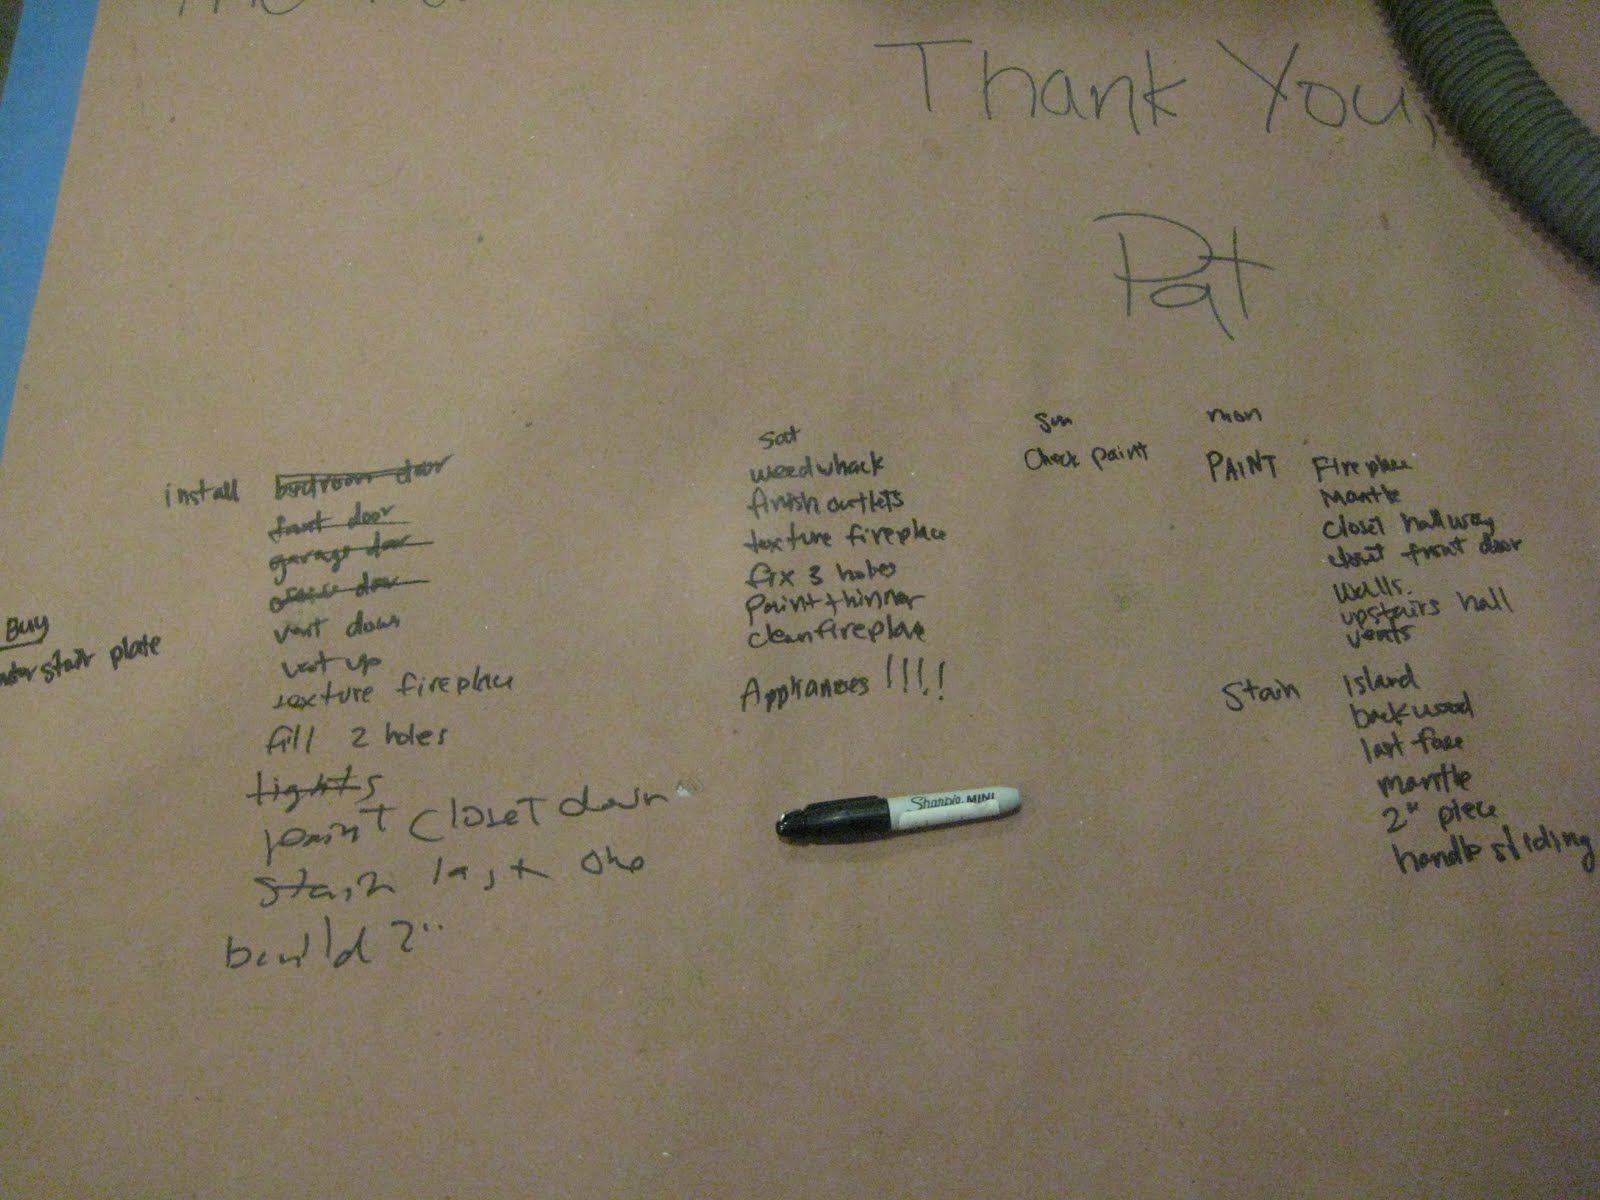 Thank You,
Pat
Buy
stair plate
install bedroom door
front door
garage door
door
vent down
vent up
texture fireplace
fill 2 holes
lights
paint closet down
stain last one
build 2"
sat
weedwhack
finish outlets
texture fireplace
fix 3 holes
Paint thinner
clean fireplace
Appliances !!!!
Sun
Check paint
mon
PAINT Fireplace
Mantle
closet hallway
closet front door
walls.
upstairs hall
vents
Stain Island
backwood
last face
mantle
2" piece
handle sliding
Sharpie MINI